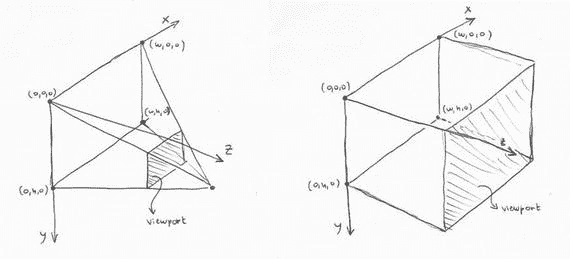 x
(w,0,0)
(0,0,0)
(w,h,0)
z
(0,h,0)
y
viewport
x
(w,0,0)
(0,0,0)
(w,h,0)
z
(0,h,0)
y
viewport